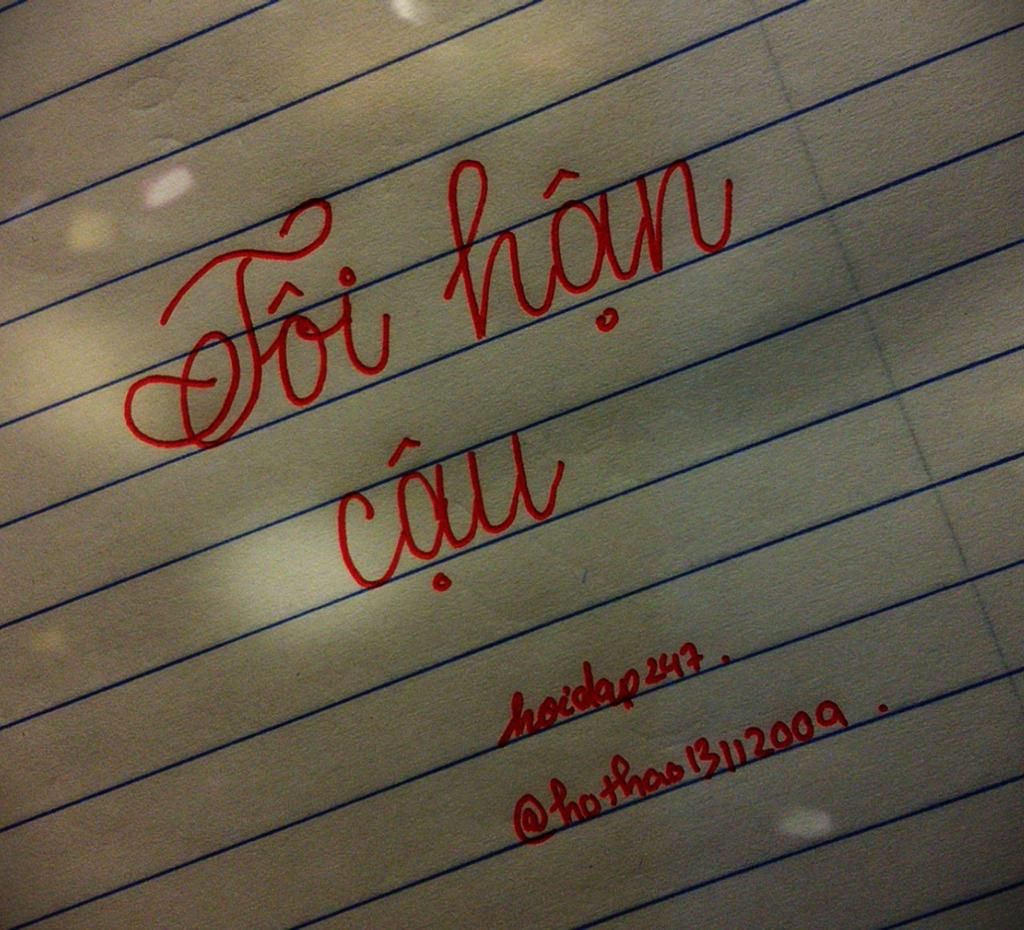 Tôi hận
cậu
hoidap247.
@hothao13112009.